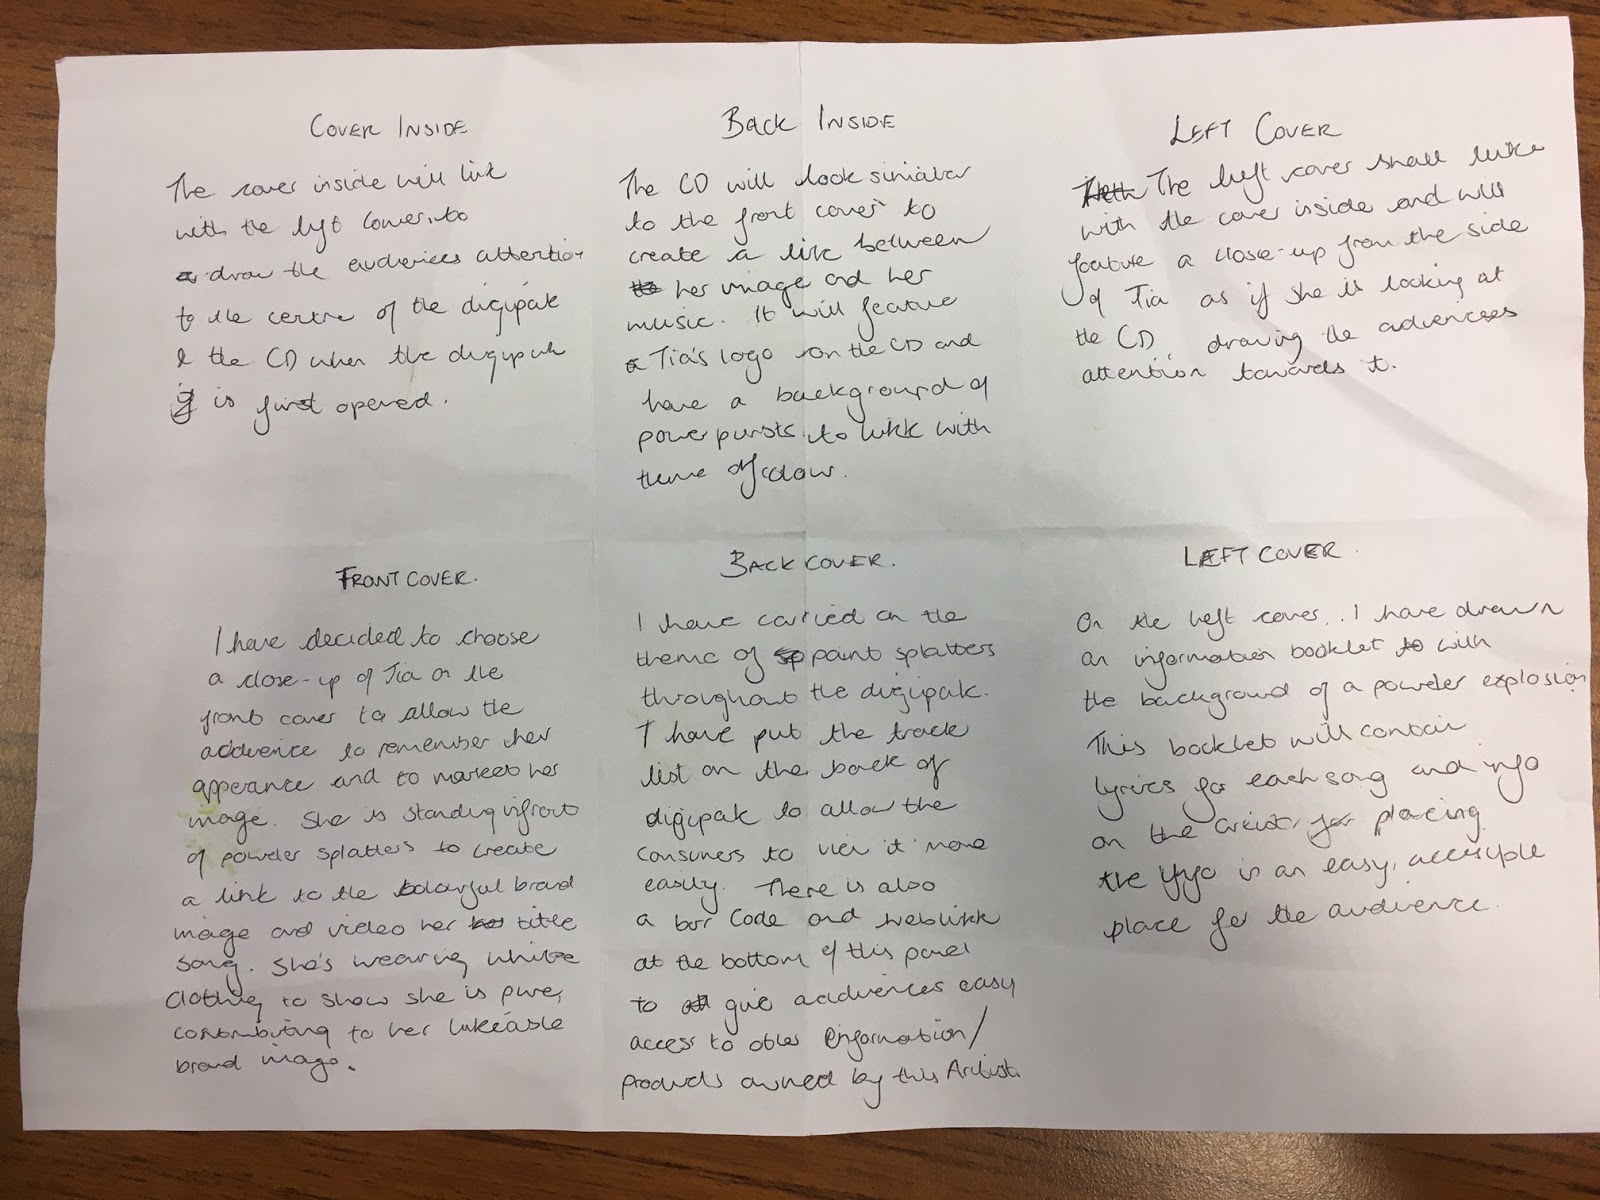 COVER INSIDE
The cover inside will link
with the left cover, to
draw the audiences attention
to the centre of the digipak
& the CD when the digipak
is first opened.
BACK INSIDE
The CD will look similar
to the front cover to
create a link between
her image and her
music. It will feature
Tia's logo on the CD and
have a background of
power pursts to link with
theme of colour.
LEFT COVER
The left cover shall link
with the cover inside and will
feature a close-up from the side
of Tia as if she is looking at
the CD, drawing the audiences
attention towards it.
FRONT COVER.
I have decided to choose
a close-up of Tia on the
front cover to allow the
audience to remember her
apperance and to market her
image. She is standing infront
of powder splatters to create
a link to the colourful brand
image and video her title
song. She's wearing white
clothing to show she is pure,
contributing to her likeable
brand image.
BACK COVER.
I have carried on the
theme of paint splatters
throughout the digipak.
I have put the track
list on the back of
digipak to allow the
consumers to view it more
easily. There is also
a bar code and weblink
at the bottom of this panel
to give audiences easy
access to other information/
products owned by this Artist.
LEFT COVER.
On the left cover, I have drawn
an information booklet with
the background of a powder explosion
This booklet will contain
lyrics for each song and info
on the artist placing
the info in an easy, accessible
place for the audience.